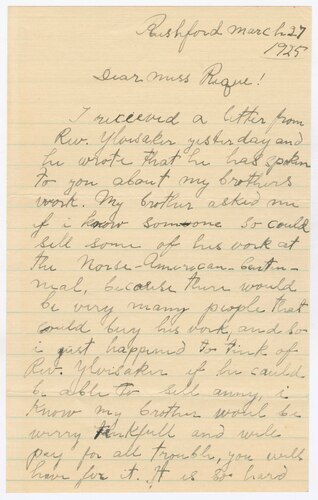 Rushford March 27
1925
Dear Miss Rique!
I received a letter from
Rev. Ylvisaker yesterday and
he wrote that he has spoken
to you about my brothers
work. My brother asked me
if i know someone so could
sell some of his work at
the Norse-American-Centen-
nial, because there would
be very many people that
would buy his work, and so
i just happened to tink of
Rev. Ylvisaker if he could
be able to sell anny, i
know my brother would be
verry tinkfull and will
pay for all trouble, you will
have for it. It is so hard